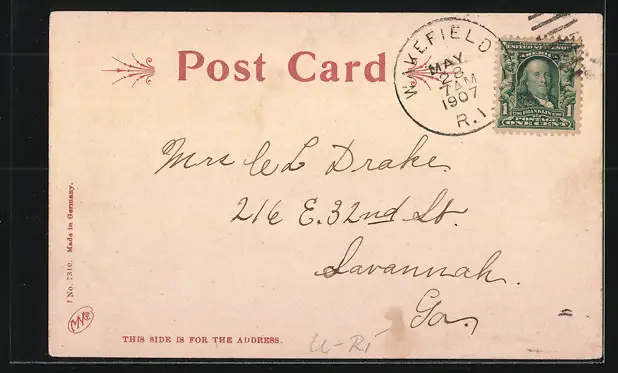 Post Card
WAKEFIELD
MAY
28
7 AM
1907
R.I.
UNITED STATES OF AMERICA
1 FRANKLIN 1
POSTAGE
ONE CENT
Mrs C L Drake
216 E. 32nd St.
Savannah.
Ga,
No. 7310. Made in Germany.
THIS SIDE IS FOR THE ADDRESS.
U-RI